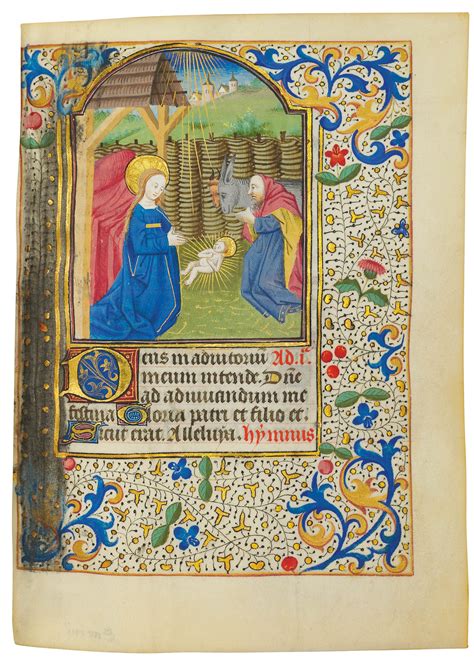 Deus in adiutoriu Ad .i.
meum intende. Dñe
ad adiuuandum me
festina Gloria patri et filio et.
Sicut erat. Alleluya. hymnus